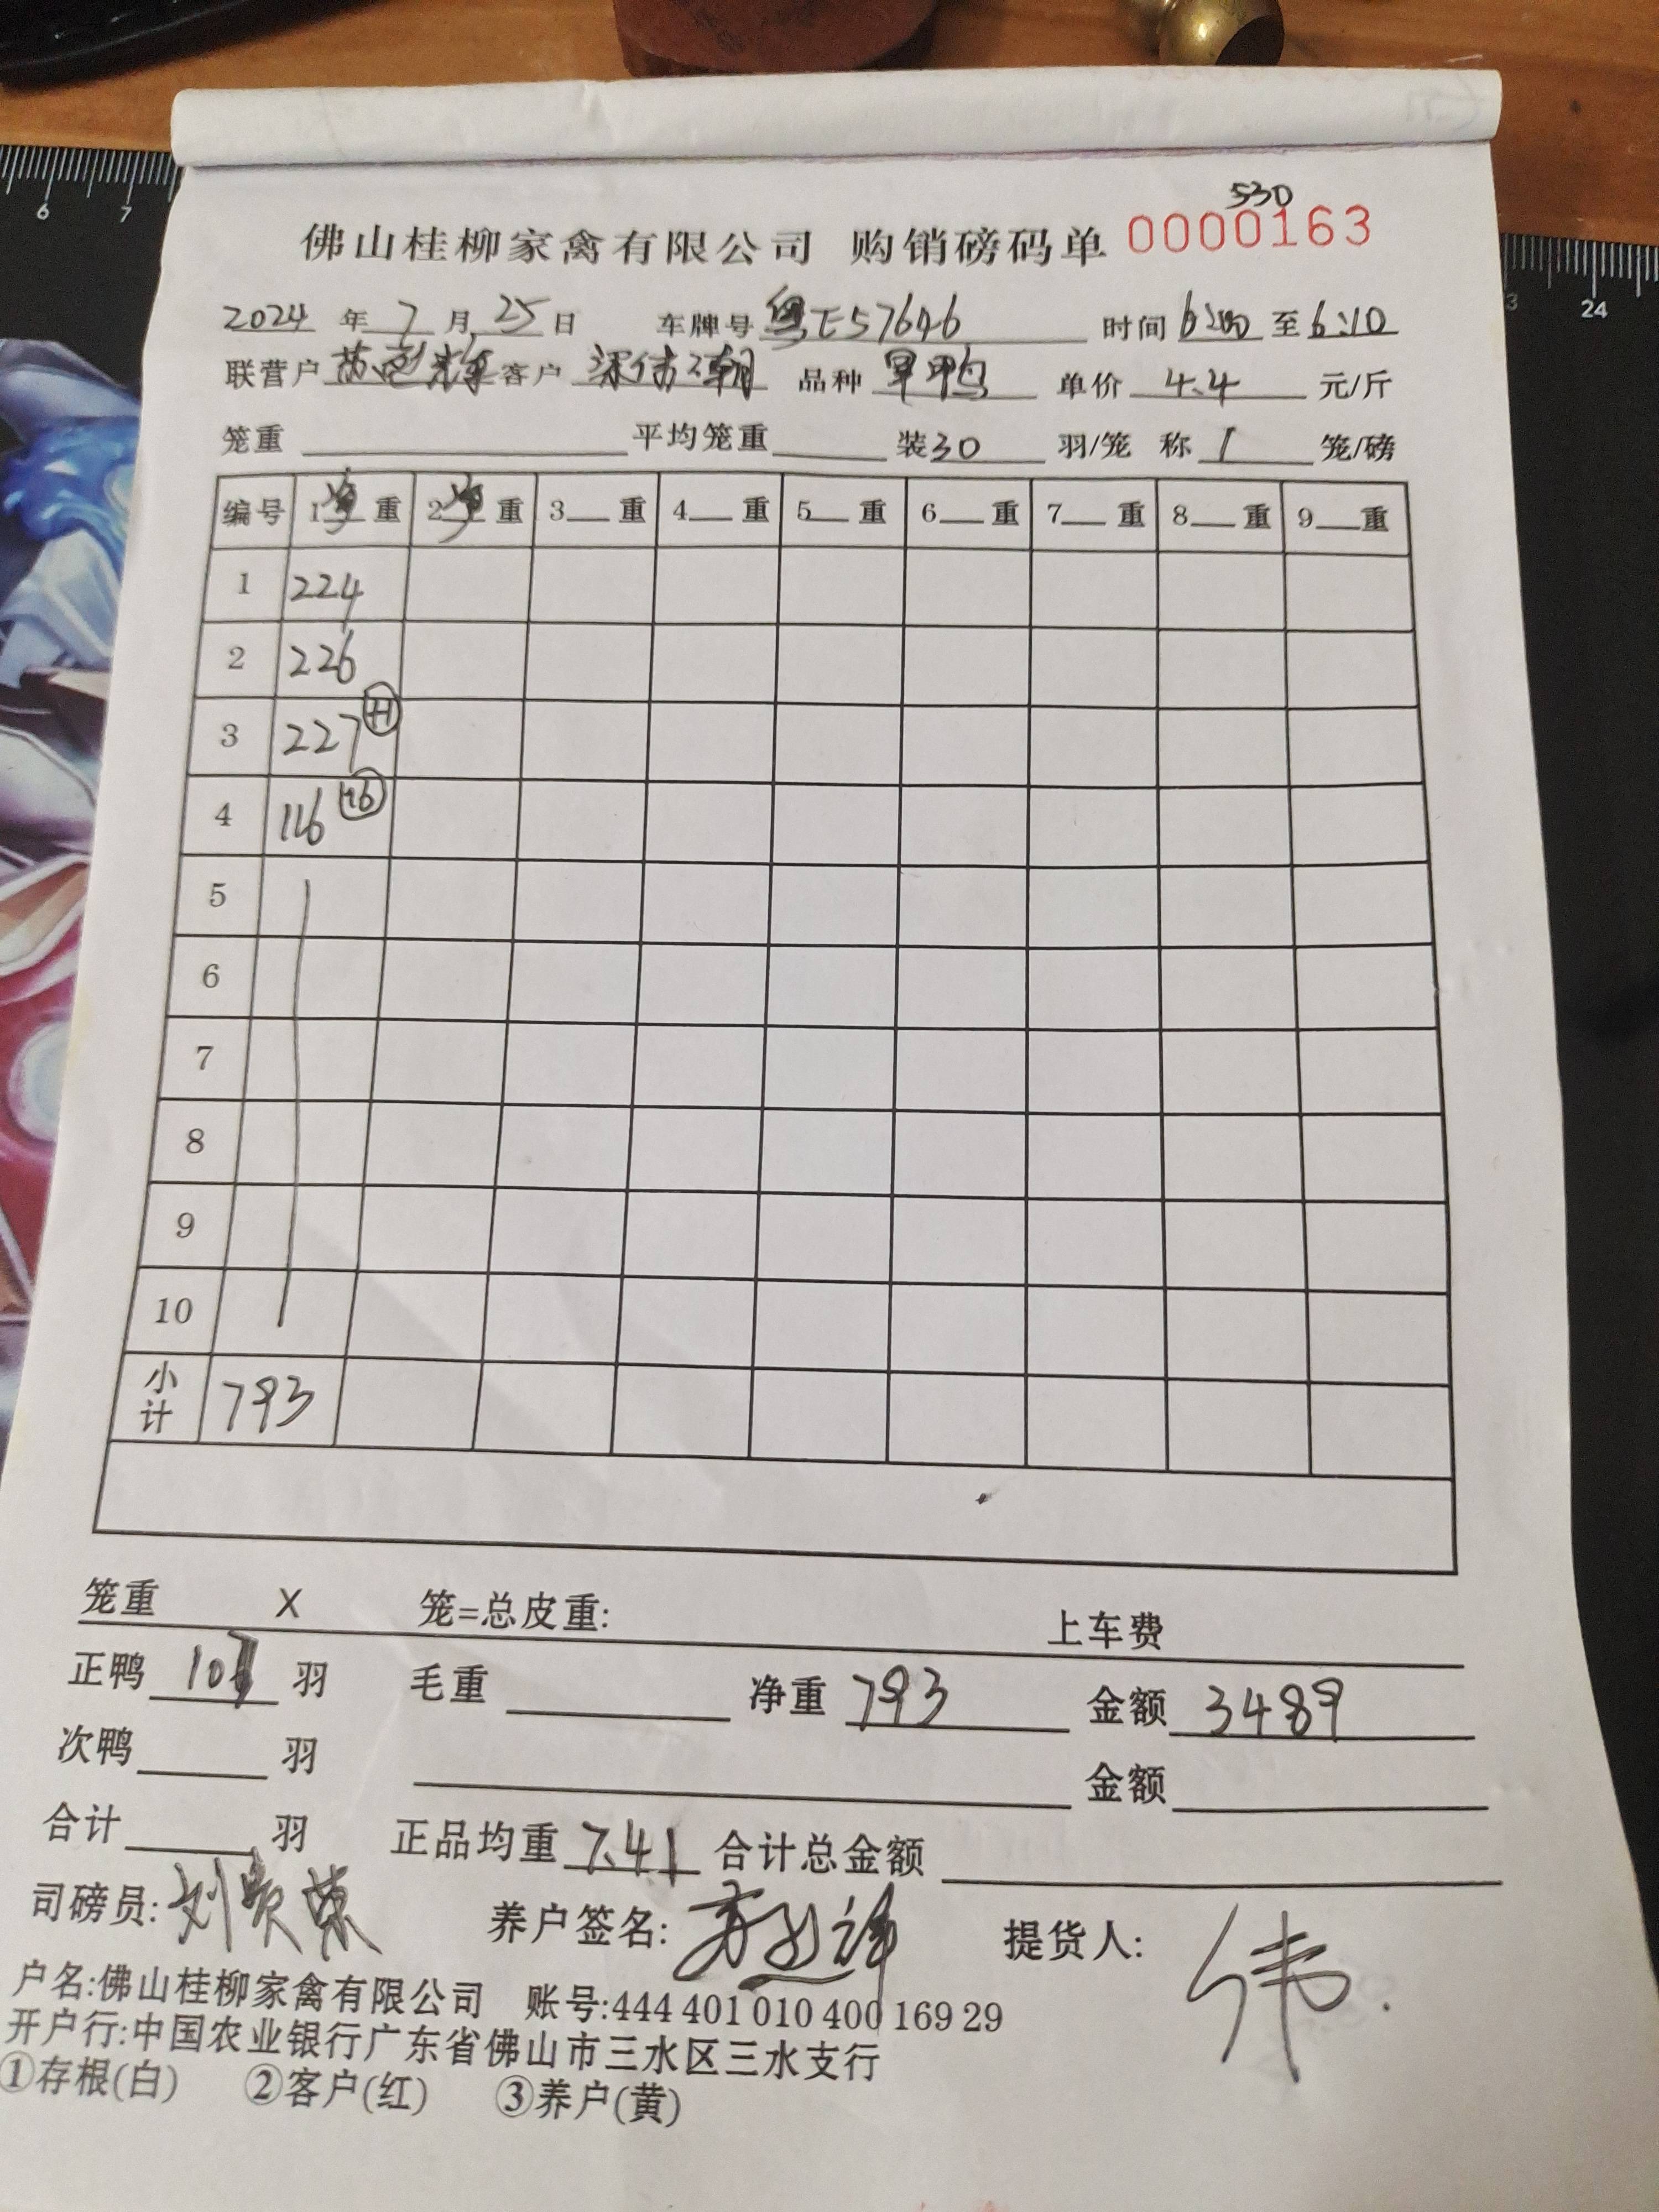 530
佛山桂柳家禽有限公司 购销磅码单 0000163
2024 年 7 月 25 日 车牌号 粤E57646 时间 6:00 至 6:10
联营户 客户 品种 单价 4.4 元/斤
笼重 平均笼重 装 30 羽/笼 称 1 笼/磅
编号 1净重 2净重 3 重 4 重 5 重 6 重 7 重 8 重 9 重
1 224
2 226
3 227
4 116
5
6
7
8
9
10
小计 793
笼重 X 笼=总皮重: 上车费
正鸭 羽 毛重 净重 793 金额 3489
次鸭 羽 金额
合计 羽 正品均重 7.41 合计总金额
司磅员: 养户签名: 提货人: 伟
户名:佛山桂柳家禽有限公司 账号:444 401 010 400 169 29
开户行:中国农业银行广东省佛山市三水区三水支行
①存根(白) ②客户(红) ③养户(黄)
6 7
23 24